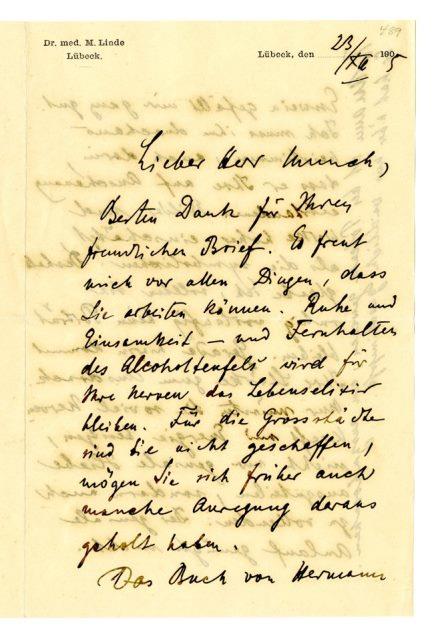 489
Dr. med. M. Linde
Lübeck.
Lübeck, den 23/XII 1905
Lieber Herr Munch,
Besten Dank für Ihren
freundlichen Brief. Es freut
mich vor allen Dingen, dass
Sie arbeiten können. Ruhe und
Einsamkeit – und Fernhalten
des Alcoholteufels wird für
Ihre Nerven das Lebenselixir
bleiben. Für die Grossstädte
sind Sie nicht geschaffen,
mögen Sie sich früher auch
manche Anregung daraus
geholt haben.
Das Buch von Hermann